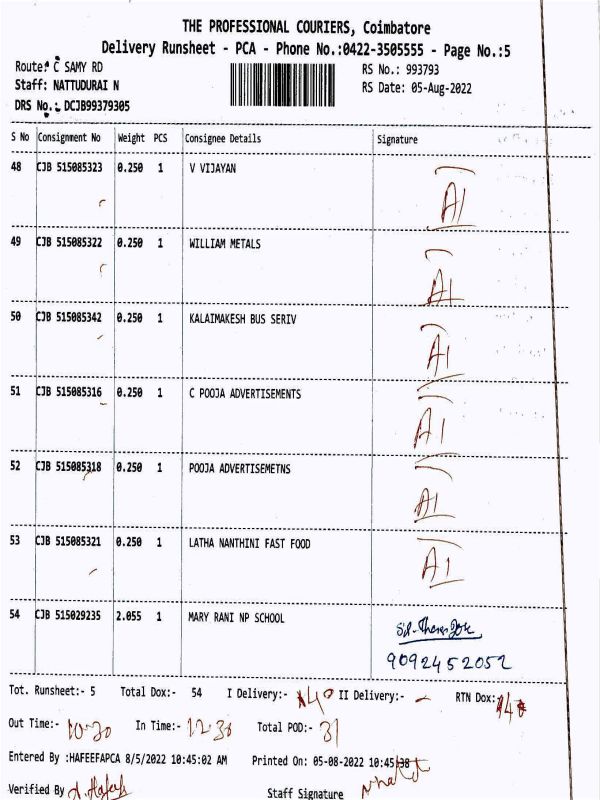 THE PROFESSIONAL COURIERS, Coimbatore
Delivery Runsheet - PCA - Phone No.:0422-3505555 - Page No.:5
Route: C SAMY RD
RS No.: 993793
Staff: NATTUDURAI N
RS Date: 05-Aug-2022
DRS No.: DCJB99379305
S No Consignment No Weight PCS Consignee Details Signature
48 CJB 515085323 0.250 1 V VIJAYAN A1
49 CJB 515085322 0.250 1 WILLIAM METALS A1
50 CJB 515085342 0.250 1 KALAIMAKESH BUS SERIV A1
51 CJB 515085316 0.250 1 C POOJA ADVERTISEMENTS A1
52 CJB 515085318 0.250 1 POOJA ADVERTISEMETNS A1
53 CJB 515085321 0.250 1 LATHA NANTHINI FAST FOOD A1
54 CJB 515029235 2.055 1 MARY RANI NP SCHOOL
9092452052
Tot. Runsheet:- 5 Total Dox:- 54 I Delivery:- 40 II Delivery:- - RTN Dox:- 14
Out Time:- 10-30 In Time:- 12-30 Total POD:- 31
Entered By :HAFEEFAPCA 8/5/2022 10:45:02 AM Printed On: 05-08-2022 10:45:38
Verified By
Staff Signature